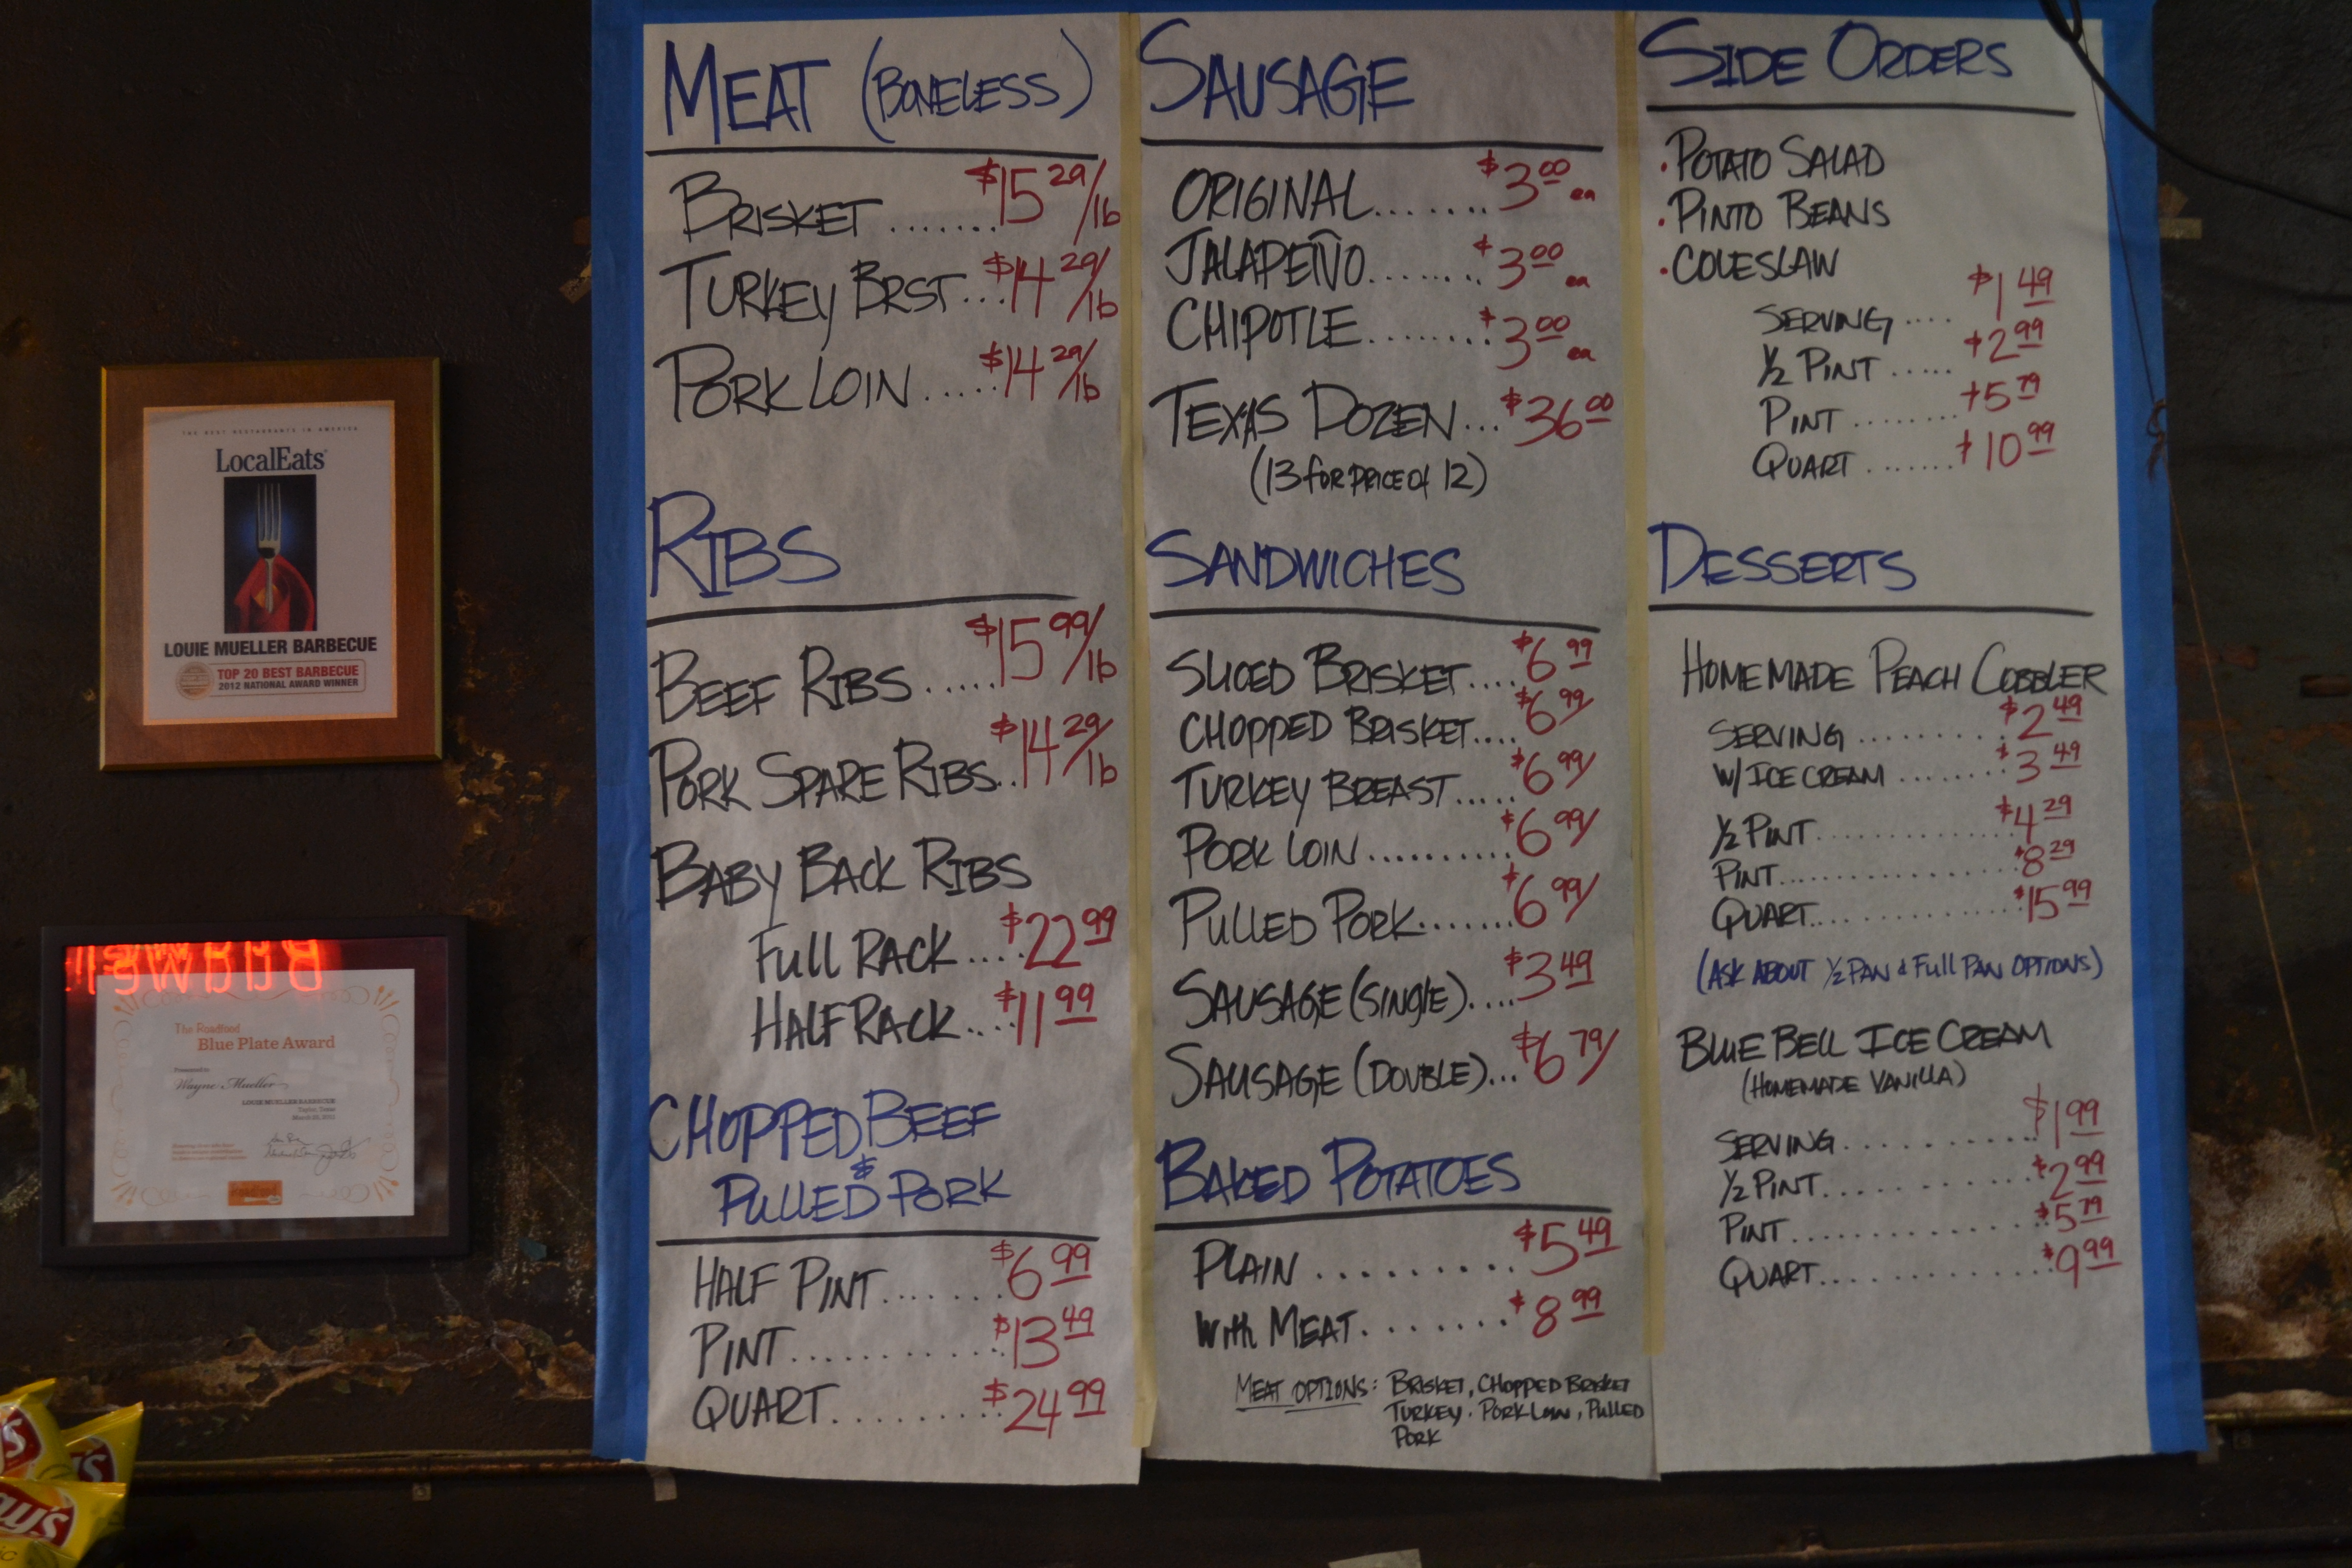 THE BEST RESTAURANTS IN AMERICA
LocalEats
LOUIE MUELLER BARBECUE
TOP 20 BEST BARBECUE
2012 NATIONAL AWARD WINNER
The Roadfood
Blue Plate Award
Presented to
Wayne Mueller
LOUIE MUELLER BARBECUE
Taylor, Texas
MEAT (BONELESS)
BRISKET ....... $15 29/lb
TURKEY BRST... $14 29/lb
PORK LOIN..... $14 29/lb
RIBS
BEEF RIBS ..... $15 99/lb
PORK SPARE RIBS.. $14 29/lb
BABY BACK RIBS
FULL RACK .... $22 99
HALF RACK.... $11 99
CHOPPED BEEF
&
PULLED PORK
HALF PINT....... $6 99
PINT........... $13 49
QUART......... $24 99
SAUSAGE
ORIGINAL....... $3 00 ea
JALAPEÑO....... $3 00 ea
CHIPOTLE....... $3 00 ea
TEXAS DOZEN... $36 00
(13 for PRICE of 12)
SANDWICHES
SLICED BRISKET.... $6 99
CHOPPED BRISKET.... $6 99
TURKEY BREAST..... $6 99
PORK LOIN.......... $6 99
PULLED PORK....... $6 99
SAUSAGE (SINGLE).... $3 49
SAUSAGE (DOUBLE)... $6 79
BAKED POTATOES
PLAIN ......... $5 49
With MEAT....... $8 99
MEAT OPTIONS: BRISKET, CHOPPED BRISKET
TURKEY. PORK LOIN, PULLED
PORK
SIDE ORDERS
• POTATO SALAD
• PINTO BEANS
• COLESLAW
SERVING .... $1 49
1/2 PINT ..... $2 99
PINT ........ $5 79
QUART ....... $10 99
DESSERTS
HOMEMADE PEACH COBBLER
SERVING ......... $2 49
W/ ICE CREAM ....... $3 49
1/2 PINT............ $4 29
PINT................ $8 29
QUART.............. $15 99
(ASK ABOUT 1/2 PAN & Full PAN OPTIONS)
BLUE BELL ICE CREAM
(HOMEMADE VANILLA)
SERVING........... $1 99
1/2 PINT............ $2 99
PINT............. $5 79
QUART............. $9 99